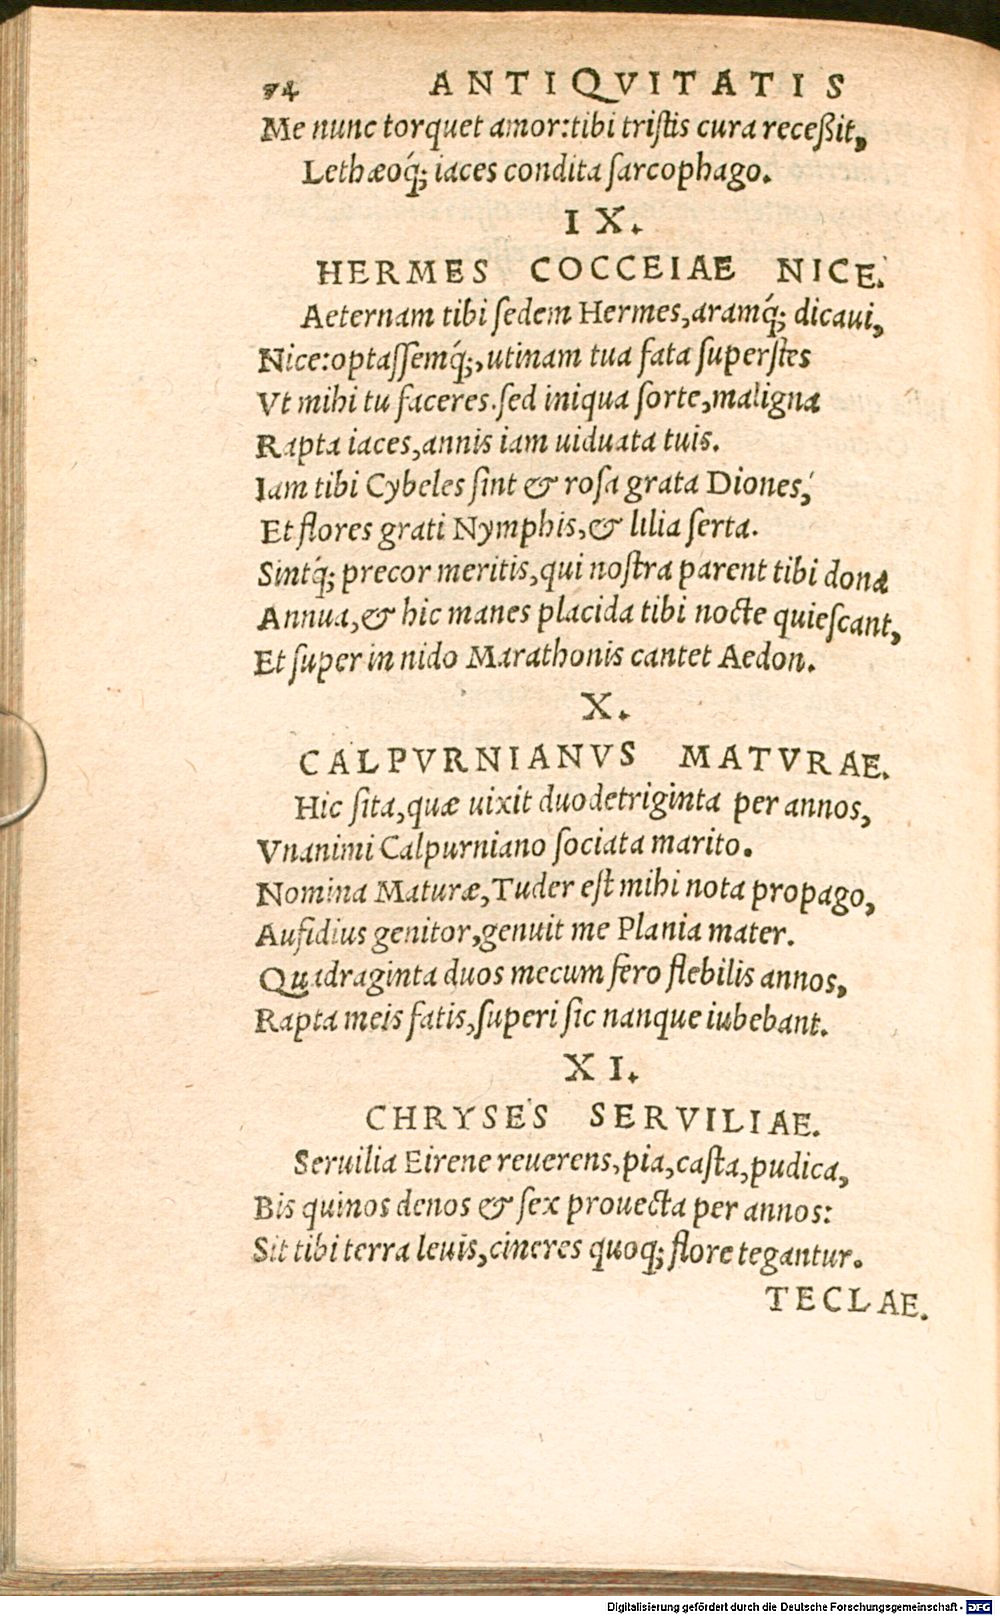 74 ANTIQVITATIS
Me nunc torquet amor:tibi tristis cura receßit,
Lethæoq́; iaces condita sarcophago.
IX.
HERMES COCCEIAE NICE.
Aeternam tibi sedem Hermes,aramq́; dicaui,
Nice:optassemq́;,utinam tua fata superstes
Vt mihi tu faceres.sed iniqua sorte,maligna
Rapta iaces,annis iam uiduata tuis.
Iam tibi Cybeles sint & rosa grata Diones,
Et flores grati Nymphis,& lilia serta.
Sintq́; precor meritis,qui nostra parent tibi dona
Annua,& hic manes placida tibi nocte quiescant,
Et super in nido Marathonis cantet Aedon.
X.
CALPVRNIANVS MATVRAE.
Hic sita,quæ uixit duodetriginta per annos,
Vnanimi Calpurniano sociata marito.
Nomina Maturæ,Tuder est mihi nota propago,
Aufidius genitor,genuit me Plania mater.
Quadraginta duos mecum fero flebilis annos,
Rapta meis fatis,superi sic nanque iubebant.
XI.
CHRYSES SERVILIAE.
Seruilia Eirene reuerens,pia,casta,pudica,
Bis quinos denos & sex prouecta per annos:
Sit tibi terra leuis,cineres quoq; flore tegantur.
TECLAE.
Digitalisierung gefördert durch die Deutsche Forschungsgemeinschaft - DFG